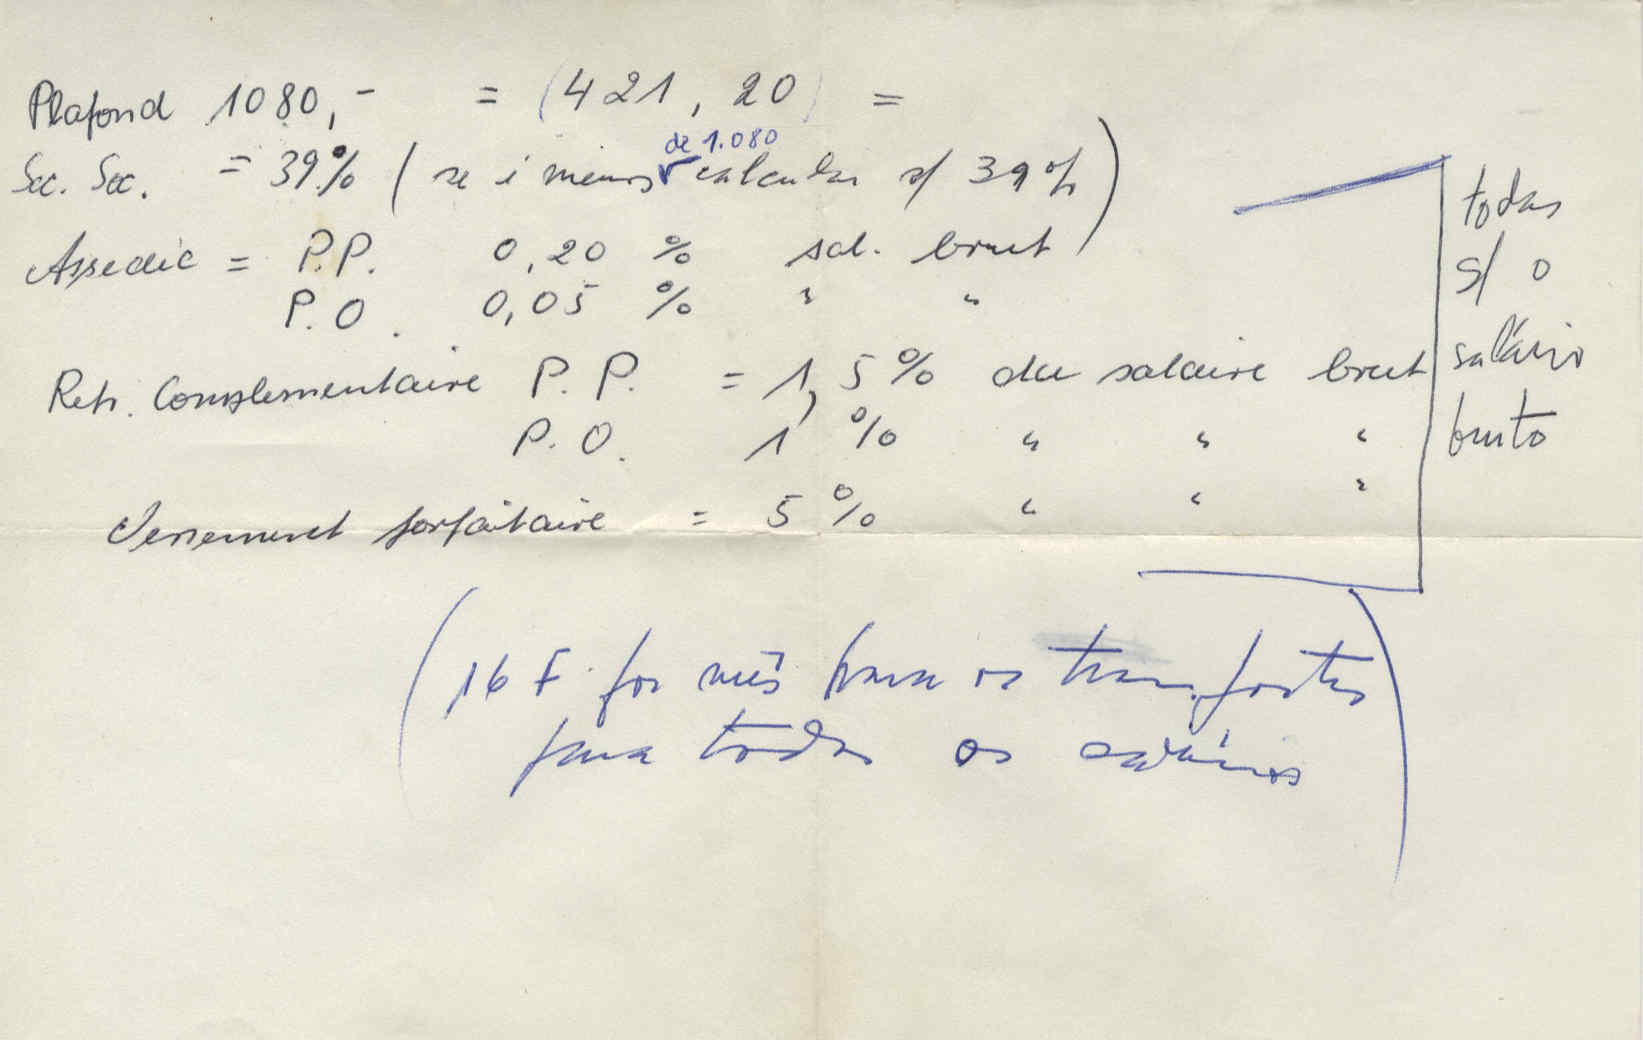 Plafond 1080,- = (421,20) =
Sec. Soc. = 39% (se i menos de 1.080 calcular s/ 39%)
Assedic = P.P. 0,20 % sal. brut
P.O. 0,05 % " "
Retr. Complementaire P.P. = 1,5% du salaire brut
P.O. 1 % " " "
Versement forfaitaire = 5 % " " "
todas
s/ o
salário
bruto
(16 F. por mês para os transportes
para todos os salários)